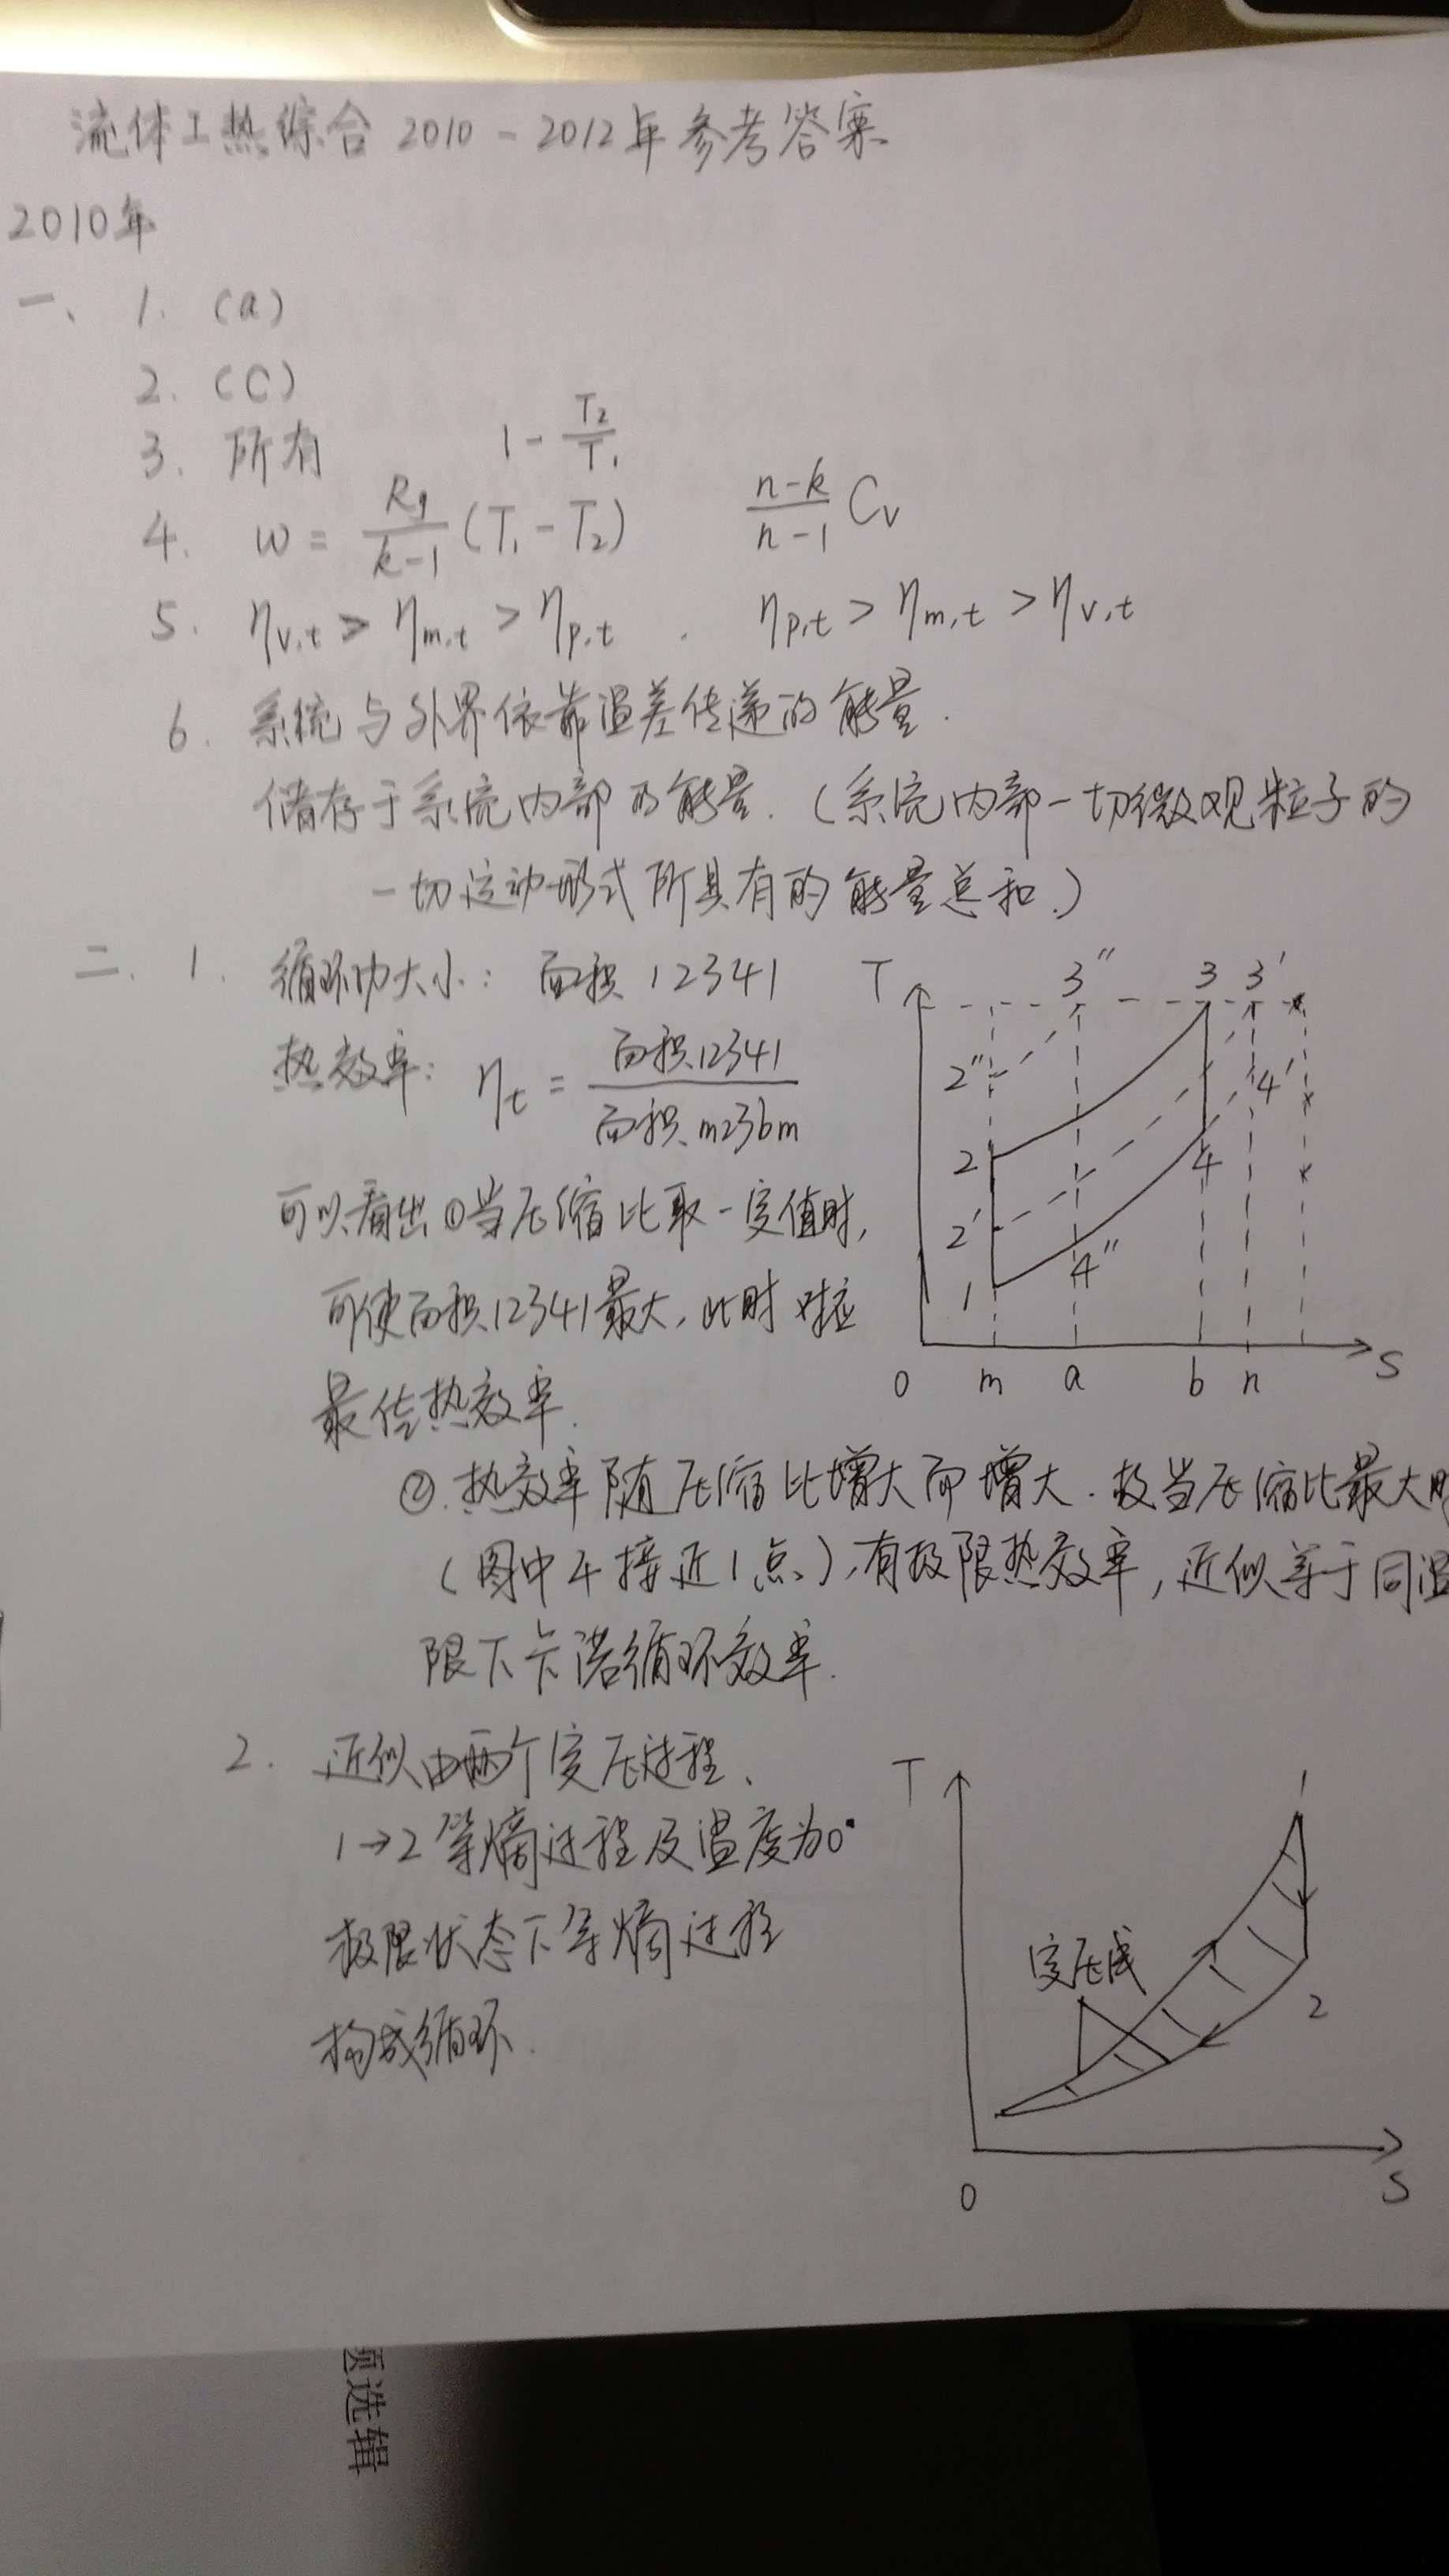 流体工热综合 2010-2012年参考答案
2010年
一、1. (a)
2. (C)
3. 所有 1-T₂/T₁
4. w = Rg/(k-1) (T₁-T₂) (n-k)/(n-1) Cv
5. ηv,t > ηm,t > ηp,t . ηp,t > ηm,t > ηv,t
6. 系统与外界依靠温差传递的能量.
储存于系统内部的能量.(系统内部一切微观粒子的
一切运动形式所具有的能量总和.)
二. 1. 循环功大小: 面积 12341
热效率: ηt = 面积12341/面积m23bm
可以看出①当压缩比取一定值时,
可使面积12341最大,此时对应
最佳热效率.
T 3″ 3 3′
2″ 4′
2 4
2′
1 4″
0 m a b n S
②.热效率随压缩比增大而增大.故当压缩比最大时
(图中4接近1点),有极限热效率,近似等于同温
限下卡诺循环效率.
2. 近似由两个定压过程、
1→2等熵过程及温度为0°
极限状态下等熵过程
构成循环.
T 1
定压线
2
0 S
题选辑